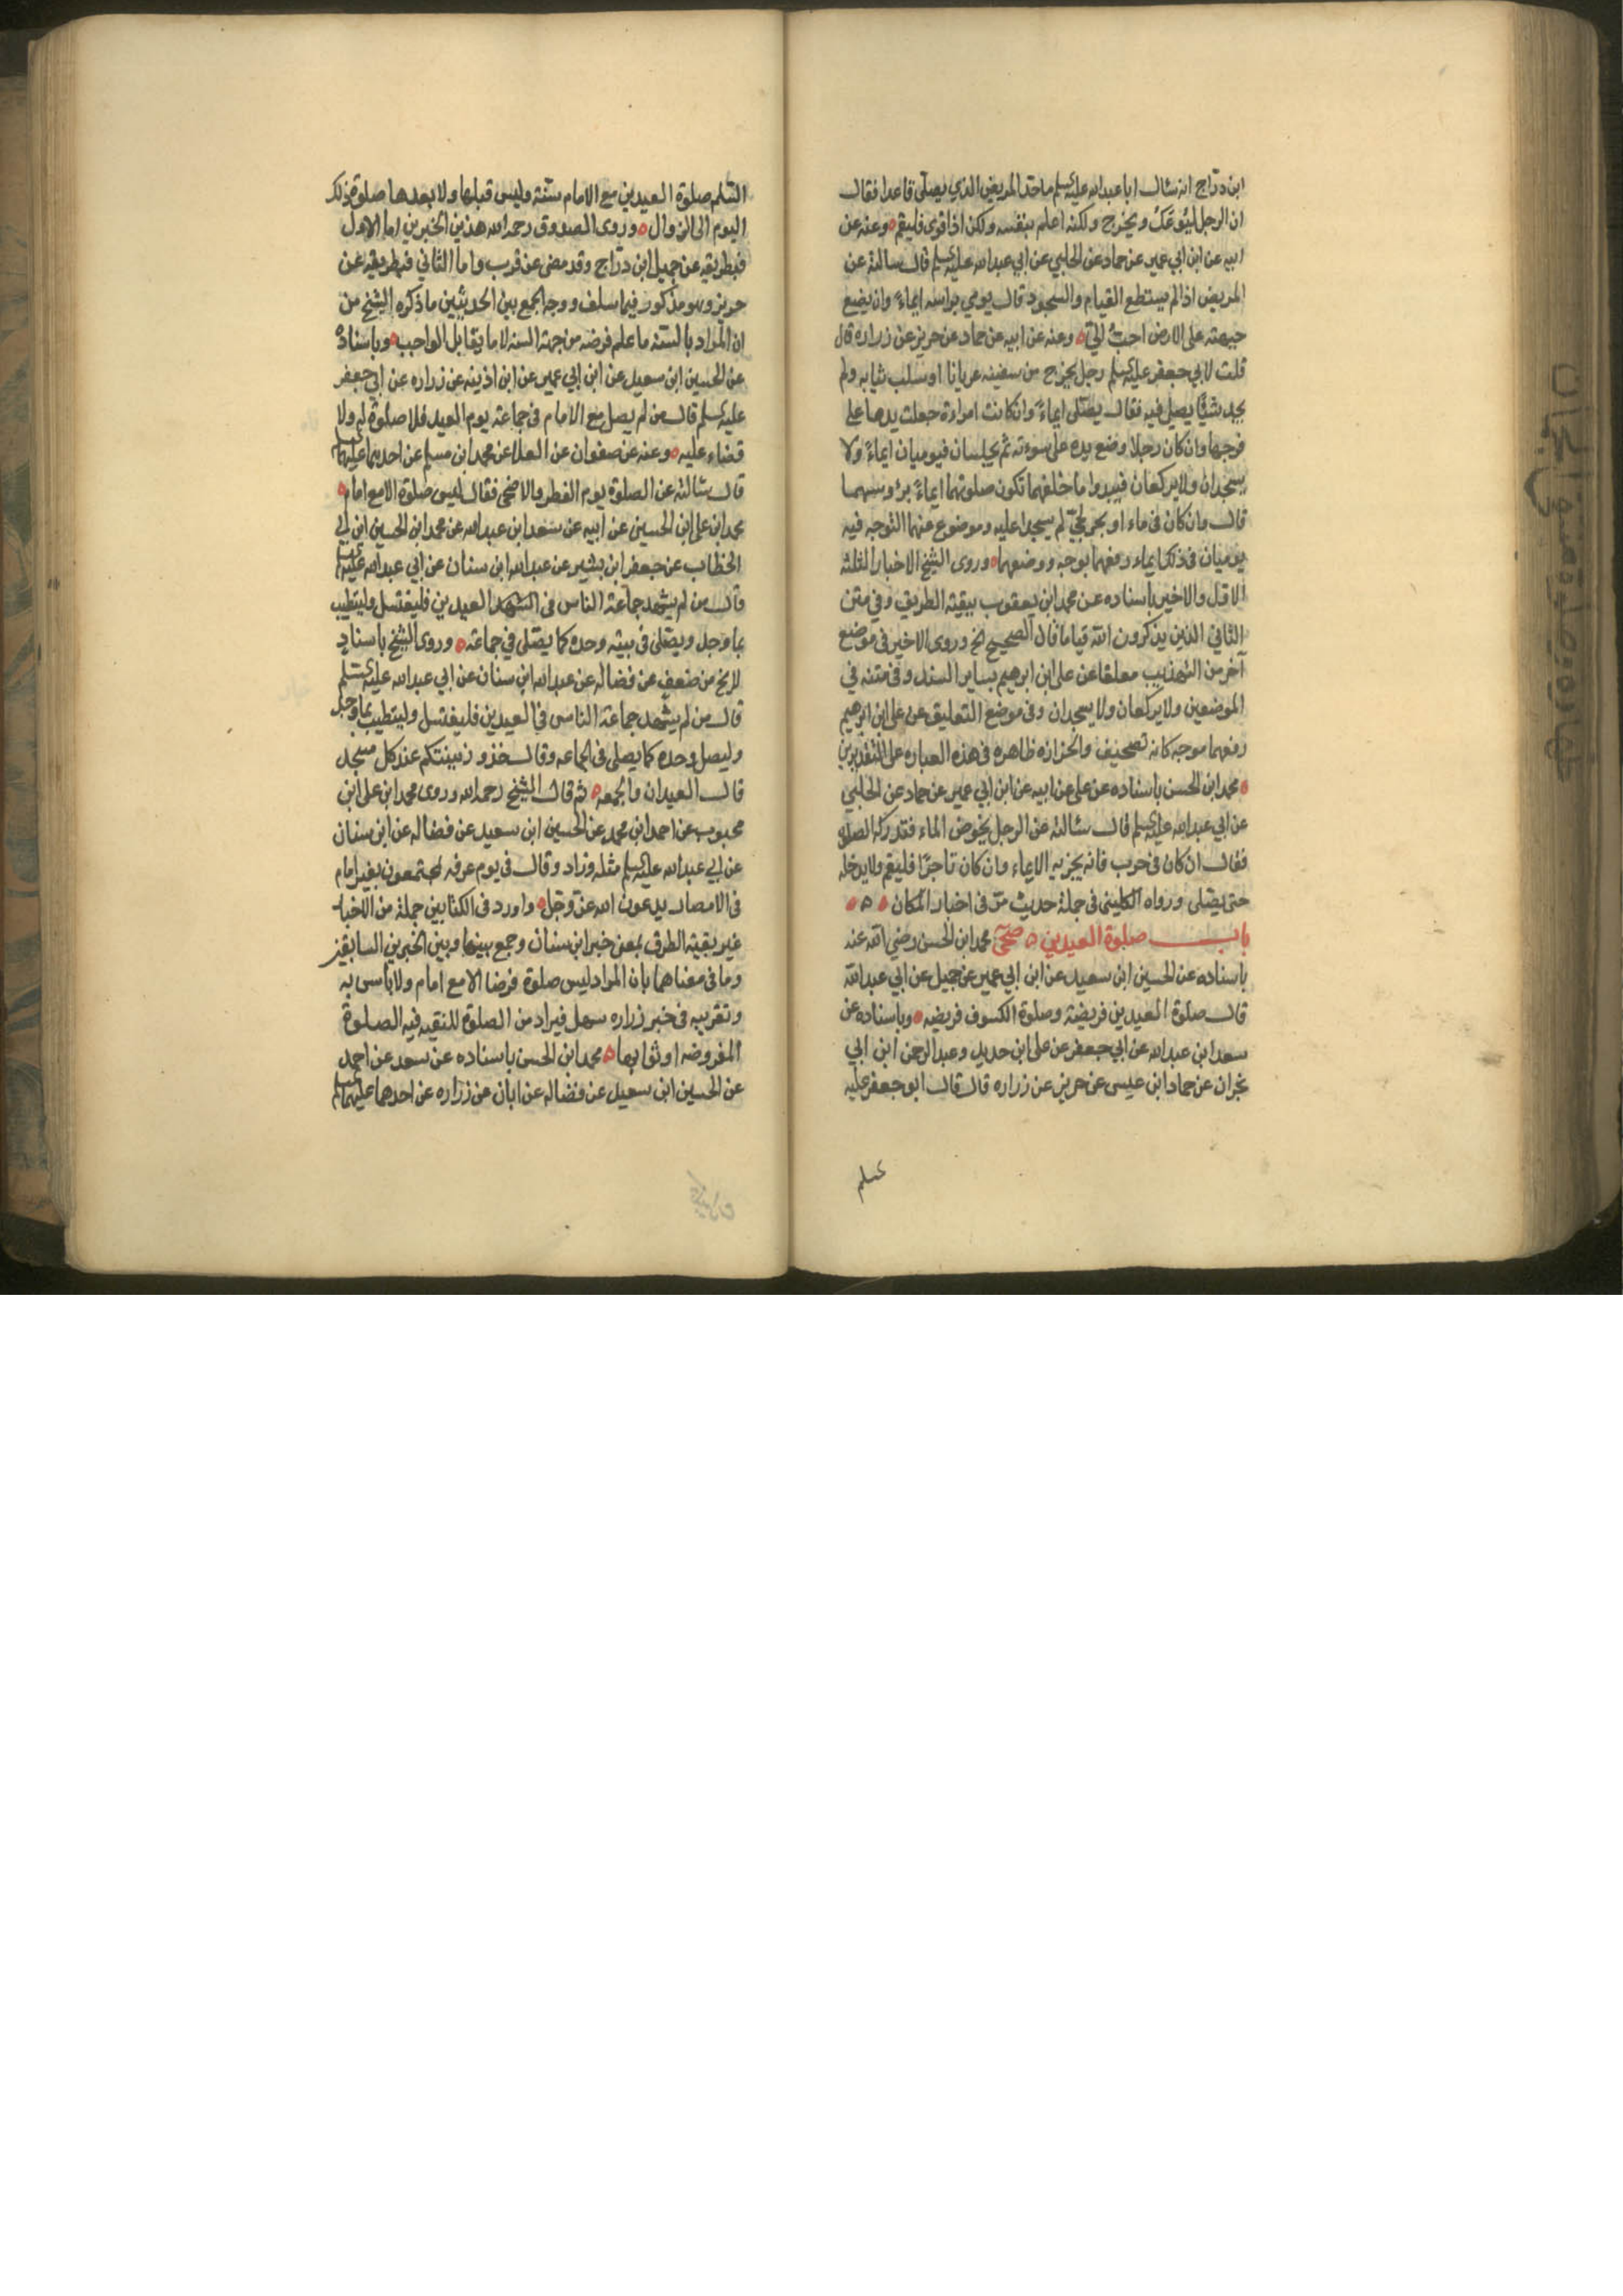 ابن دراج انه سٔال ابا عبدالله عليه السلم ما حد المريض الذي يصلى قاعدا فقال
ان الرجل ليُوعَكُ ويخرج ولكنه اعلم بنفسه ولكن اذا قوى فليقم ه وعنه عن
ابيه عن ابن ابي عمير عن حماد عن الحلبي عن ابي عبدالله عليه السلم قال سالته عن
المريض اذا لم يستطع القيام والسجود قال يومي براسه ايماءً وان يضع
جبهته على الارض احبُّ اليّ ه وعنه عن ابيه عن حماد عن حريز عن زراره قال
قلت لابي جعفر عليه السلم رجل يخرج من سفينه عريانا او سلب ثيابه ولم
يجد شئًا يصلي فيه فقال يصلى ايماءً وان كانت امراءة جعلت يدها على
فرجها وان كان رجلا وضع يده على سوءته ثم يجلسان فيوميان ايماءً ولا
يسجدان ولا يركعان فيبدوا ما خلفهما تكون صلوتهما ايماءً برؤسهما
قال وان كان فى ماء او بحر لجيّ لم يسجدا عليه وموضوع عنهما التوجه فيه
يوميان فى ذلك ايماء رفعهما بوجه ووضعهما ه وروى الشيخ الاخبار الثلثة
الاول والاخير باسناده عن محمد ابن يعقوب ببقية الطريق وفى متن
الثاني الذين يذكرون الله قياما قال الصحيح الخ وروى الاخير فى موضع
آخر من التهذيب معلقا عن على ابن ابرهيم بساير السند وفى متنه في
الموضعين ولا يركعان ولا يسجدان وفى موضع التعليق عن على ابن ابرهيم
رفعهما موجه كانه تصحيف والحزازه ظاهره فى هذه العباره على التقديرين
ه محمد ابن الحسن باسناده عن على عن ابيه عن ابن ابي عمير عن حماد عن الحلبي
عن ابي عبدالله عليه السلم قال سٔالته عن الرجل يخوض الماء فتدركه الصلوة
فقال ان كان فى حرب فانه يجزيه الايماء وان كان تاجرًا فليقم ولا يدخله
حتى يصلى ورواه الكليني فى جملة حديث مرّ فى اخبار المكان ه ه ه
باب صلوة العيدين ه صحى محمد ابن الحسن رضي الله عنه
باسناده عن الحسين ابن سعيد عن ابن ابي عمير عن جميل عن ابي عبدالله
قال صلوة العيدين فريضة وصلوة الكسوف فريضه ه وباسناده عن
سعد ابن عبدالله عن ابي جعفر عن على ابن حديد وعبدالرحمن ابن ابي
نجران عن حماد ابن عيسى عن حريز عن زراره قال قال ابو جعفر عليه
السلم صلوة العيدين مع الامام سنة وليس قبلها ولا بعدها صلوة ذلك
اليوم الى الزوال ه وروى الصدوق رحمه الله هذين الخبرين اما الاول
فبطريقه عن جميل ابن دراج وقد مضى عن قرب واما الثاني فبطريقه عن
حريز وهو مذكور فيما سلف ووجه الجمع بين الحديثين ما ذكره الشيخ من
ان المراد بالسنه ما علم فرضه من جهة السنه لا ما يقابل الواجب ه وباسناده
عن الحسين ابن سعيد عن ابن ابي عمير عن ابن اذينه عن زراره عن ابي جعفر
عليه السلم قال من لم يصل مع الامام فى جماعة يوم العيد فلا صلوة له ولا
قضاء عليه ه وعنه عن صفوان عن العلا عن محمد ابن مسلم عن احدهما عليهما السلم
قال سٔالته عن الصلوة يوم الفطر والاضحى فقال ليس صلوة الا مع امام ه
محمد ابن على ابن الحسين عن ابيه عن سعد ابن عبدالله عن محمد ابن الحسين ابن ابي
الخطاب عن جعفر ابن بشير عن عبدالله ابن سنان عن ابي عبدالله عليه السلم
قال من لم يشهد جماعة الناس فى العيدين فليغتسل وليتطيب
بما وجد ويصلى فى بيته وحده كما يصلى في جماعة ه وروى الشيخ باسناد
لا يخ من ضعف عن فضاله عن عبدالله ابن سنان عن ابي عبدالله عليه السلم
قال من لم يشهد جماعة الناس فى العيدين فليغتسل وليتطيب بما وجد
وليصل وحده كما يصلى فى الجماعه وقال خذو زينتكم عند كل مسجد
قال العيدان والجمعه ه ثم قال الشيخ رحمه الله وروى محمد ابن على ابن
محبوب عن احمد ابن محمد عن الحسين ابن سعيد عن فضاله عن ابن سنان
عن ابي عبدالله عليه السلم مثله وزاد وقال فى يوم عرفه يجتمعون بغير امام
فى الامصار يدعون الله عز وجل ه واورد فى الكتابين جملة من الاخبار
غير بقية الطرق بمعنى خبر ابن سنان وجمع بينها وبين الخبرين السابقين
وما فى معناهما بان المراد ليس صلوة فرضا الا مع امام ولا باس به
وتقريبه فى خبر زراره سهل فيراد من الصلوة المنفيه فيه الصلوة
المفروضه او ثوابها ه محمد ابن الحسن باسناده عن سعد عن احمد
عن الحسين ابن سعيد عن فضاله عن ابان عن زراره عن احدهما عليهما السلم